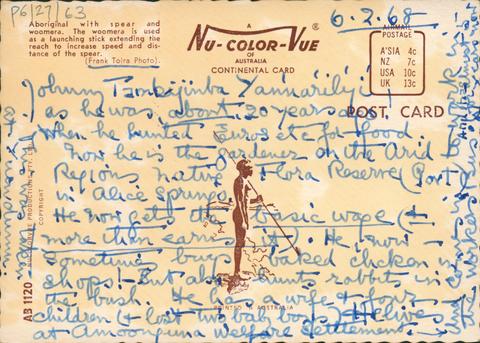 P6/27/63
Aboriginal with spear and
woomera. The woomera is used
as a launching stick extending the
reach to increase speed and dis-
tance of the spear.
(Frank Tojra Photo).
NU-COLOR-VUE
®
OF
AUSTRALIA
CONTINENTAL CARD
6.2.68
AIRMAIL
POSTAGE
A'SIA 4c
NZ 7c
USA 10c
UK 13c
POST CARD
Johnny
as he was about 20 years ago
When he hunted Euros etc for food.
Now he is the gardener on the Arid
Regions Native Flora Reserve (Govt
in Alice Springs
He now gets the basic wage (&
more than earns it). He now
Sometimes buys baked chicken in
shops! But also hunts rabbits in
the bush. He has a wife & four
children (& lost two baby boys) He lives
at Amoonguna Welfare Settlement.
PRINTED IN AUSTRALIA
AB 1120
COPYRIGHT
and comes in
the workers